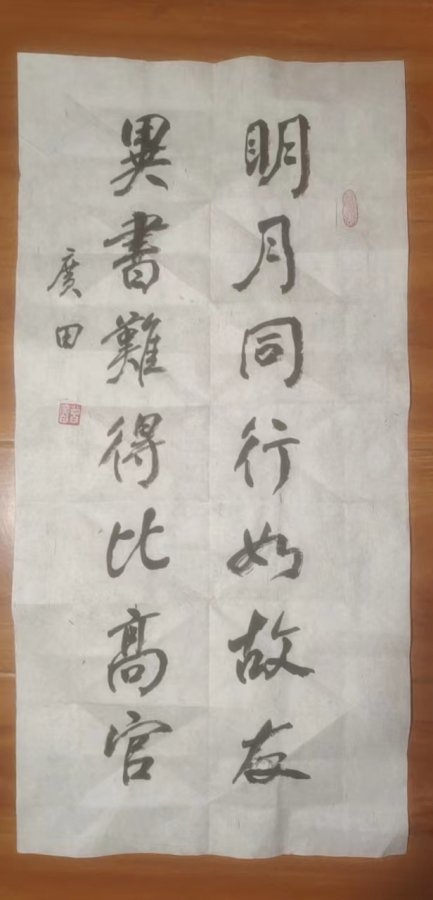 明月同行如故友
異書難得比高官
廣田